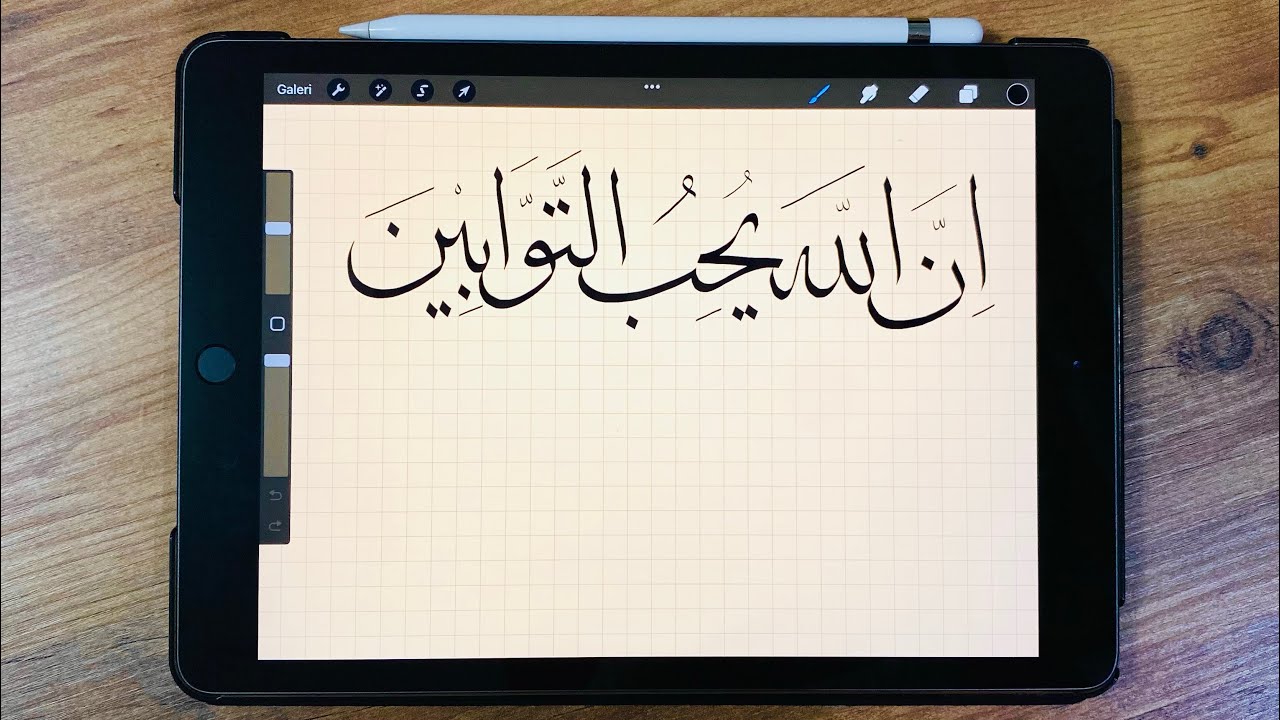 Galeri
اِنَّ اللّٰهَ يُحِبُّ التَّوَّابِيْنَ